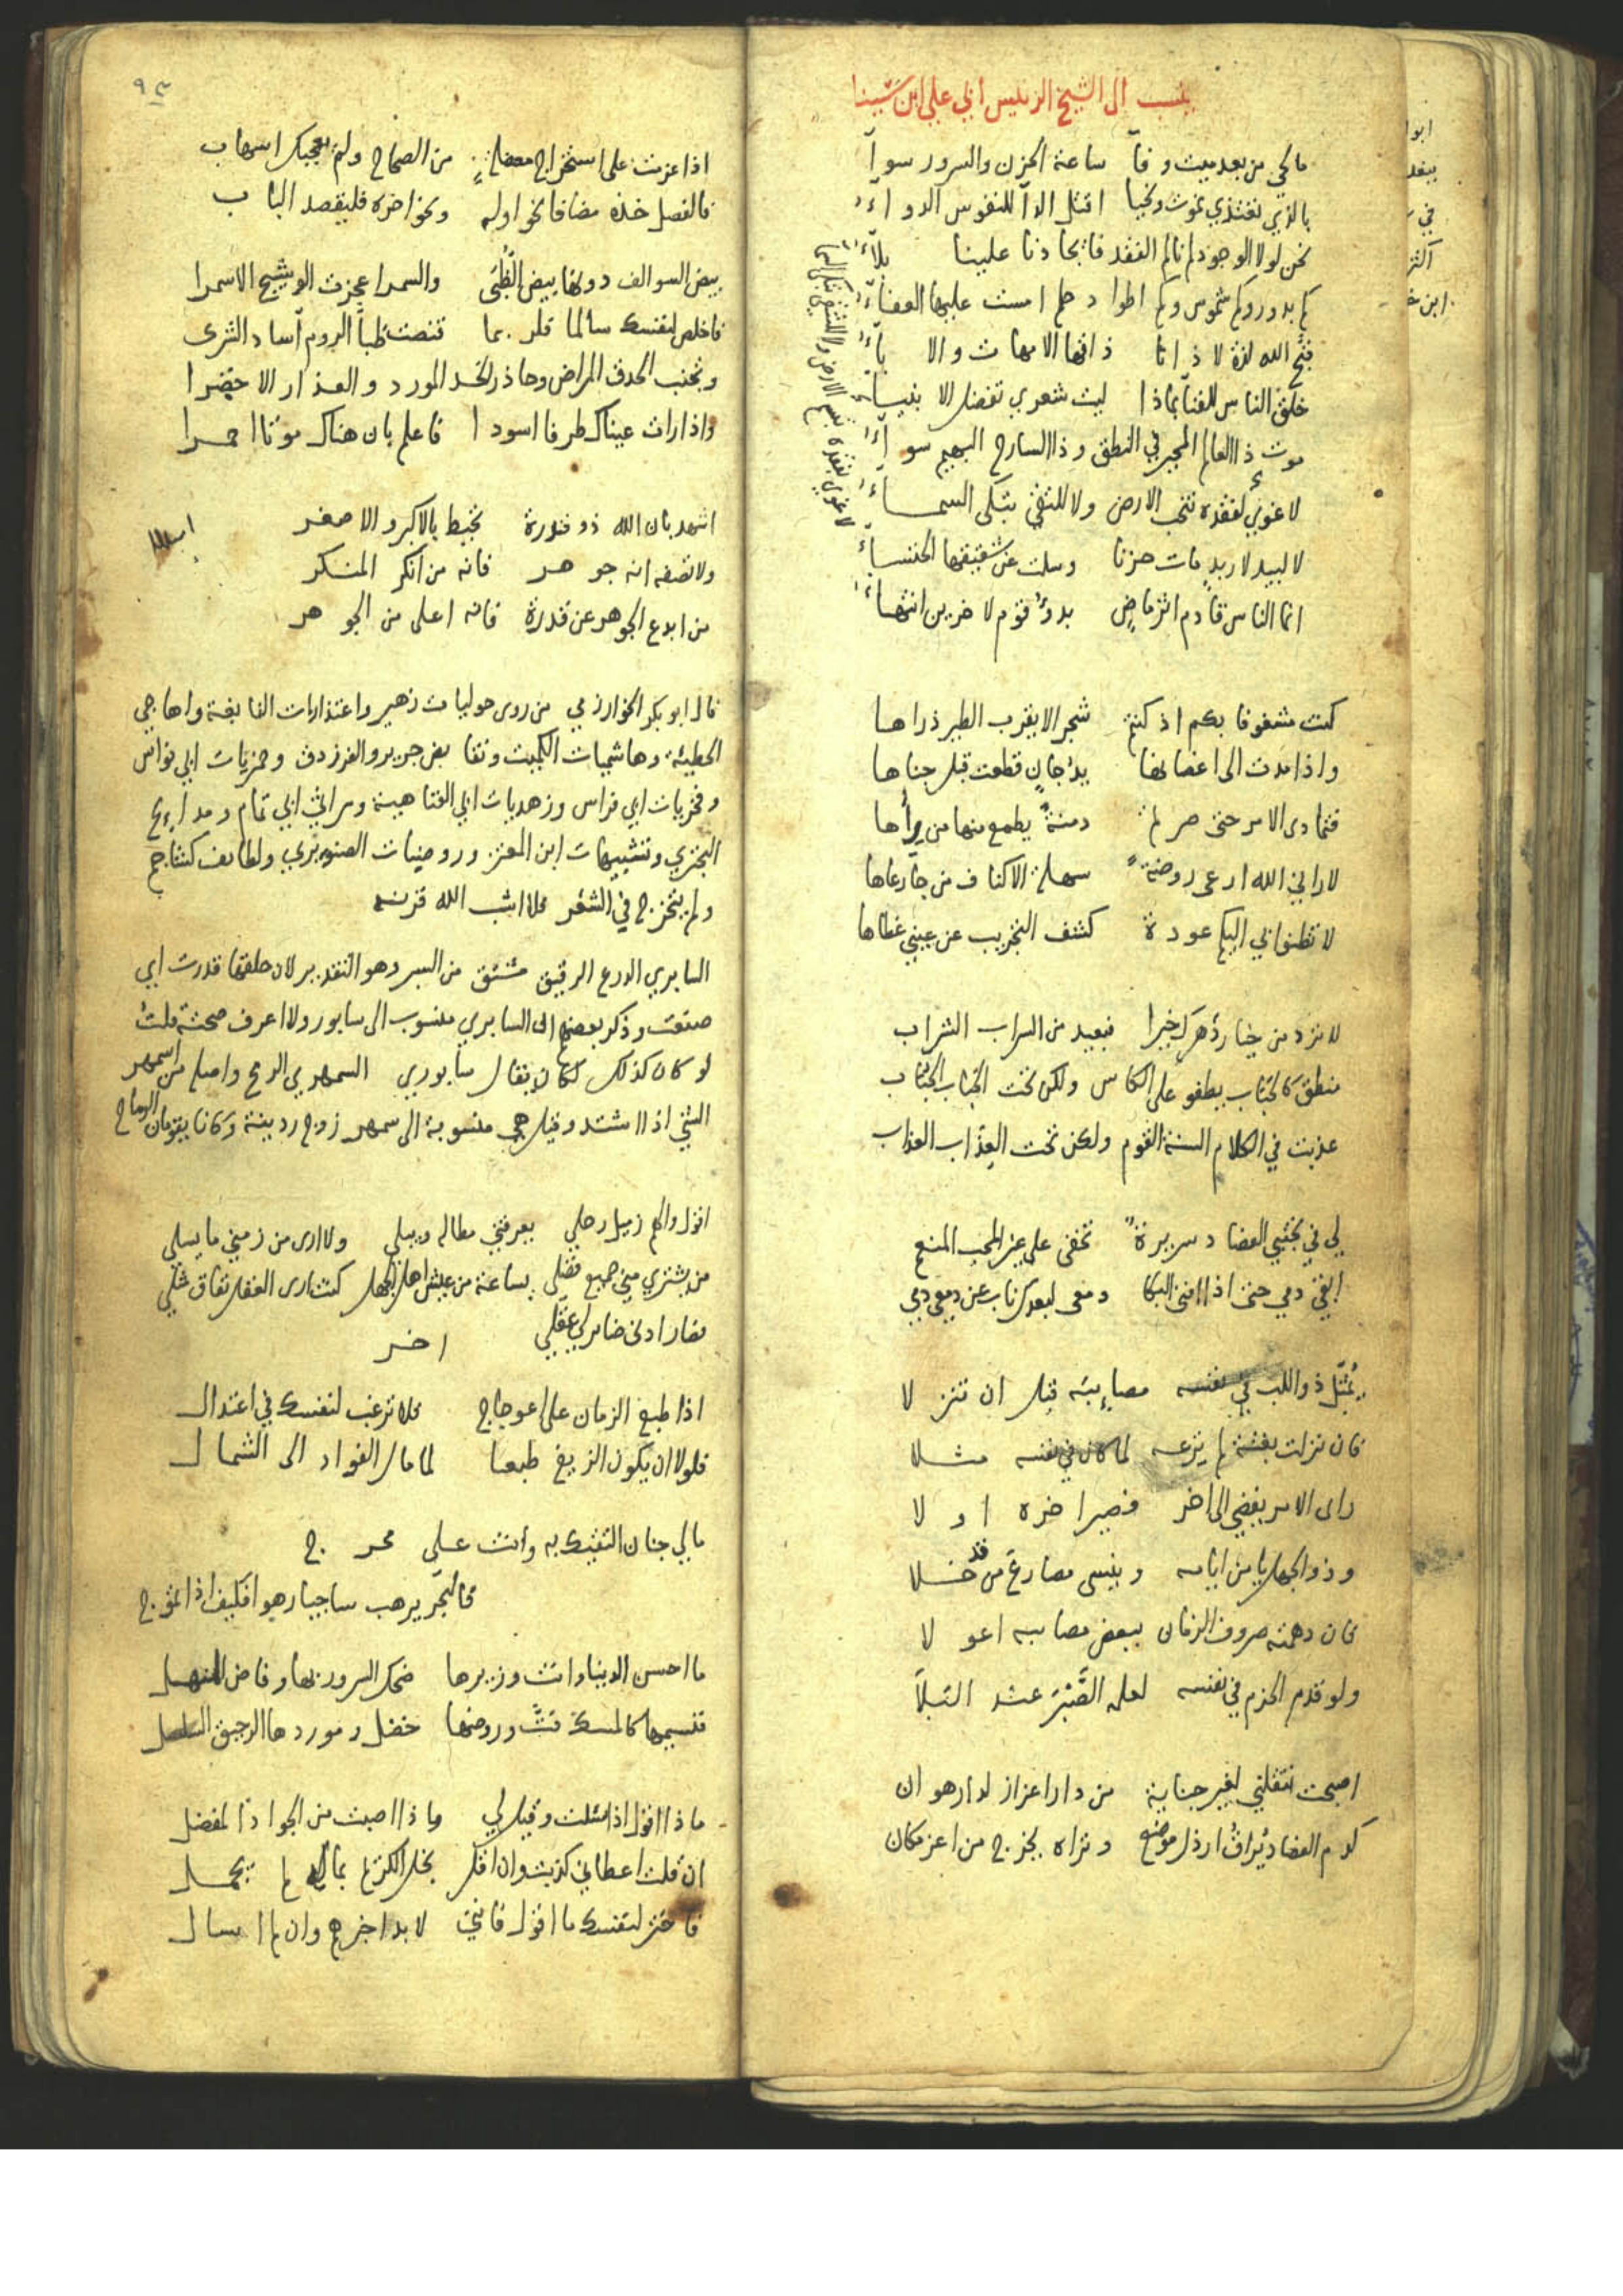 ينسب الى الشيخ الرئيس أبي علي ابن سينا
ما لحي من بعد ميت وفآ ساعة الحزن والسرور سوآ
بالذي نغتذي نموت ونحيا اقتل الدآ للنفوس الدواء
نحن لولا الوجود لم نالم الفقد فايجادنا علينا بلآء
كم بدور وكم شموس وكم اطواد حلم امست عليها العفآء
قبح الله لذة لاذانا ذاقها الامهات والابآء
خلق الناس للفنآ بماذا ليت شعري تفضل الاغبيآء
موت ذا العالم المجبر في النطق وذا السارح البهيم سوآء
لا غوي لفقده تبسم الارض ولا للتقي تبكى السمآء
لا لبيد لاربد مات حزنا وسلت عن شقيقها الخنسآء
انما الناس قادم اثر ماض بدؤ قوم لاخرين انتهآء
لا غوي لفقده تبسم الارض ولا للتقي تبكى السما
كنت مشغوفا بكم اذ كنتم شجر الا يقرب الطير ذراها
واذا مدت الى اغصانها يد جان قطعت قبل جناها
فتمادى الامر حتى صرتم دمنة يطمع منها من يرأها
لا راني الله ارعى روضة سهلة الاكناف من جآ رعاها
لا تظنوا بي اليكم عودة كشف التجريب عن عيني غطاها
لا تزد من خيار دهرك خيرا فبعيد من السراب الشراب
منطق كالحباب يطفو على الكاس ولكن تحت الحباب الحباب
عذبت في الكلام السنة القوم ولكن تحت العذاب العذاب
لي في محبتي العضاد سريرة تخفى على عز المحب المنع
ابقى دمي حتى اذا افنى البكا دمعى لبعدك ناب عن دمعي دمي
يمثل ذو اللب في نفسه مصايبه قبل ان تنزلا
فان نزلت بغتة لم يرعه لما كان في نفسه مثلا
راى الامر يفضي الى اخر فصير اخره اولا
وذو الجهل يامن ايامه وينسى مصارع من قد خلا
فان دهمته صروف الزمان ببعض مصايبه اعولا
ولو قدم الحزم في نفسه لعلمه الصبر عند البلآ
اصبحت تنقلني لغير جناية من دار اعزاز لدار هوان
كدم الفصاد يراق ارذل موضع وتراه يخرج من اعز مكان
٩٣
اذا عزمت على استخراج معضلة من الصحاح ولم يعجبك اسهاب
فالفصل خذه مضافا نحو اوله ونحو اخره فليقصد الباب
بيض السوالف دونها بيض الظبى والسمر اعجزت الوشيج الاسمرا
فاخلص لنفسك سالما فلربما قنصت ظبآ الروم آساد الثرى
وتجنب الحدق المراض وحاذر الخد المورد والعذار الاخضرا
واذا رات عيناك طرفا اسودا فاعلم بان هناك موتا احمرا
اشهد بان الله ذو قدرة تحيط بالاكبر والاصغر
ولا تصفه انه جوهر فانه من انكر المنكر
من ابدع الجوهر عن قدرة فانه اعلى من الجوهر
قال ابو بكر الخوارزمي من روى حوليات زهير واعتذاريات النابغة واهاجي
الحطيئة وهاشميات الكميت ونقايض جرير والفرزدق وخمريات ابي نواس
وفخريات ابي فراس وزهديات ابي العتاهية ومراثي ابي تمام ومدايح
البحتري وتشبيهات ابن المعتز وروضيات الصنوبري ولطايف كشاجم
ولم يتخرج في الشعر فلا اشب الله قرنه
السابري الدرع الرقيق مشتق من السبر وهو التقدير لان حلقها قدرت اي
صنعت وذكر بعضهم ان السابري منسوب الى سابور ولا اعرف صحته قلت
لو كان كذلك لكان يقال سابوري السمهري الرمح واصله من اسمهر
الشي اذا اشتد وقيل هي منسوبة الى سمهر زوج ردينة وكانا يقومان الرماح
اقول والهم زميل رحلي يعرفني مطاله ويبلي ولا ارى من زمني ما يسلي
من يشتري مني جميع فضلي بساعة من عيش اهل الجهل كنت ارى العقل نفاق شكلي
فصار ادنى ضاير لي عقلي اخر
اذا طبع الزمان على اعوجاج فلا ترغب لنفسك في اعتدال
فلولا ان يكون الزيغ طبعا لما مال الفواد الى الشمال
ما لي جنان التقيك به وانت علي محرج
فالبحر يرهب ساجيا رهوا فكيف اذا تموج
ما احسن الدنيا وانت وزيرها ضحك السرور بها وفاض المنهل
فنسيمها كالمسك فت وروضها خضل وموردها الرحيق السلسل
ماذا اقول اذا سئلت وقيل لي ماذا اصبت من الجواد المفضل
ان قلت اعطاني كذبت وان اقل بخل الكريم بماله لم يجمل
فاختر لنفسك ما اقول فانني لا بد اخبرهم وان لم اسال